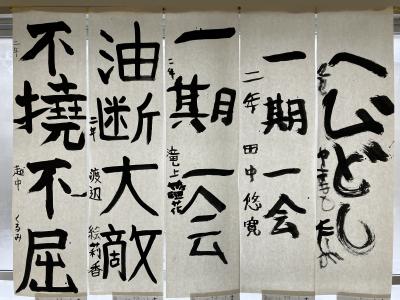 へびどし
一期一会
二年 田中悠寛
一期一会
二年
油断大敵
二年 渡辺 絵莉香
不撓不屈
二年 越中 くるみ